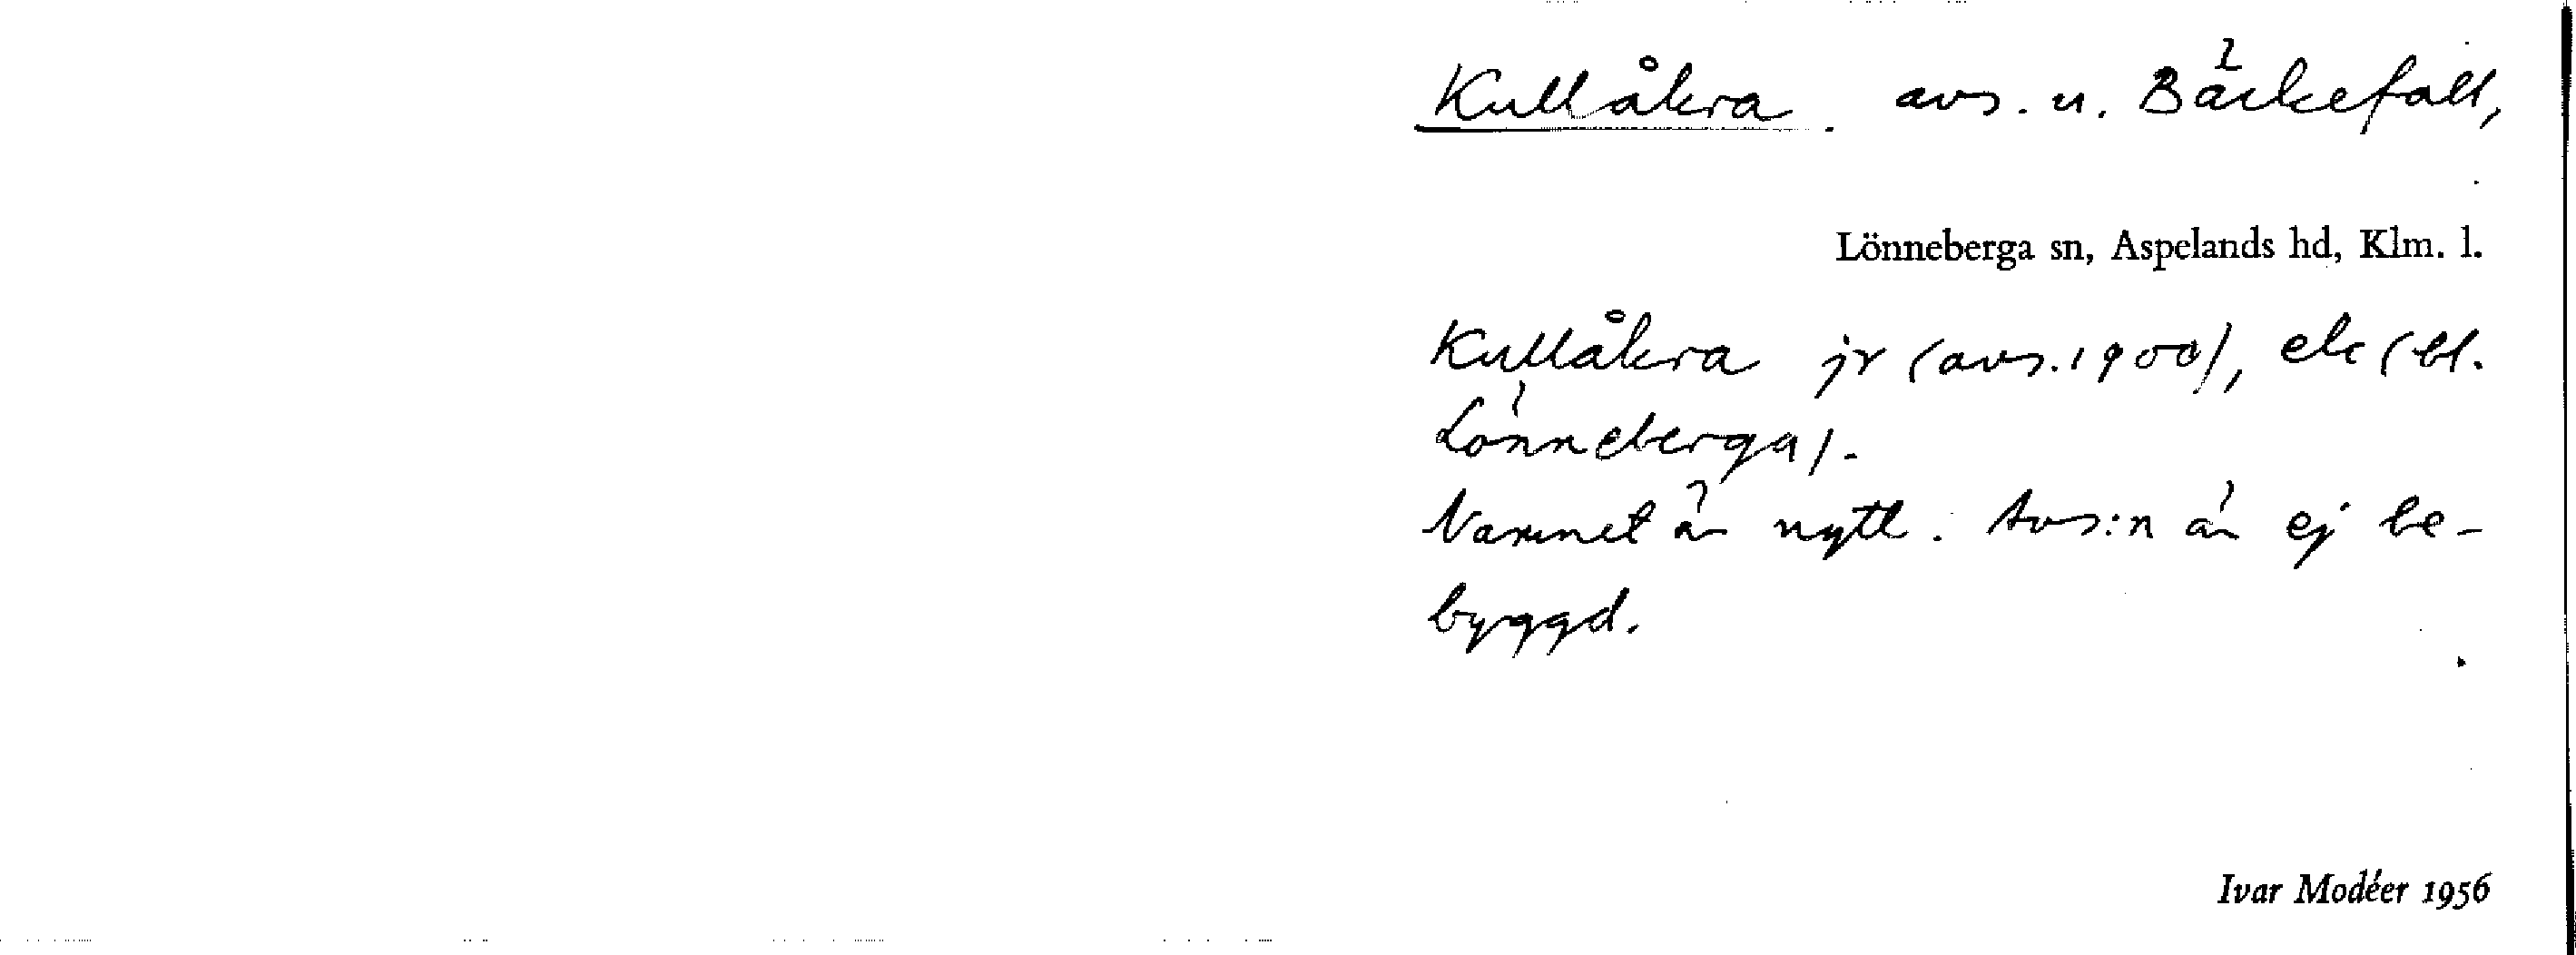 Kullåkra. avs. u. Bäckefall,
Lönneberga sn, Aspelands hd, Klm. l.
Kullåkra jr (avs. 1900), ek (bl.
Lönneberga).
Namnet är nytt. Avs:n är ej be-
byggd.
Ivar Modéer 1956